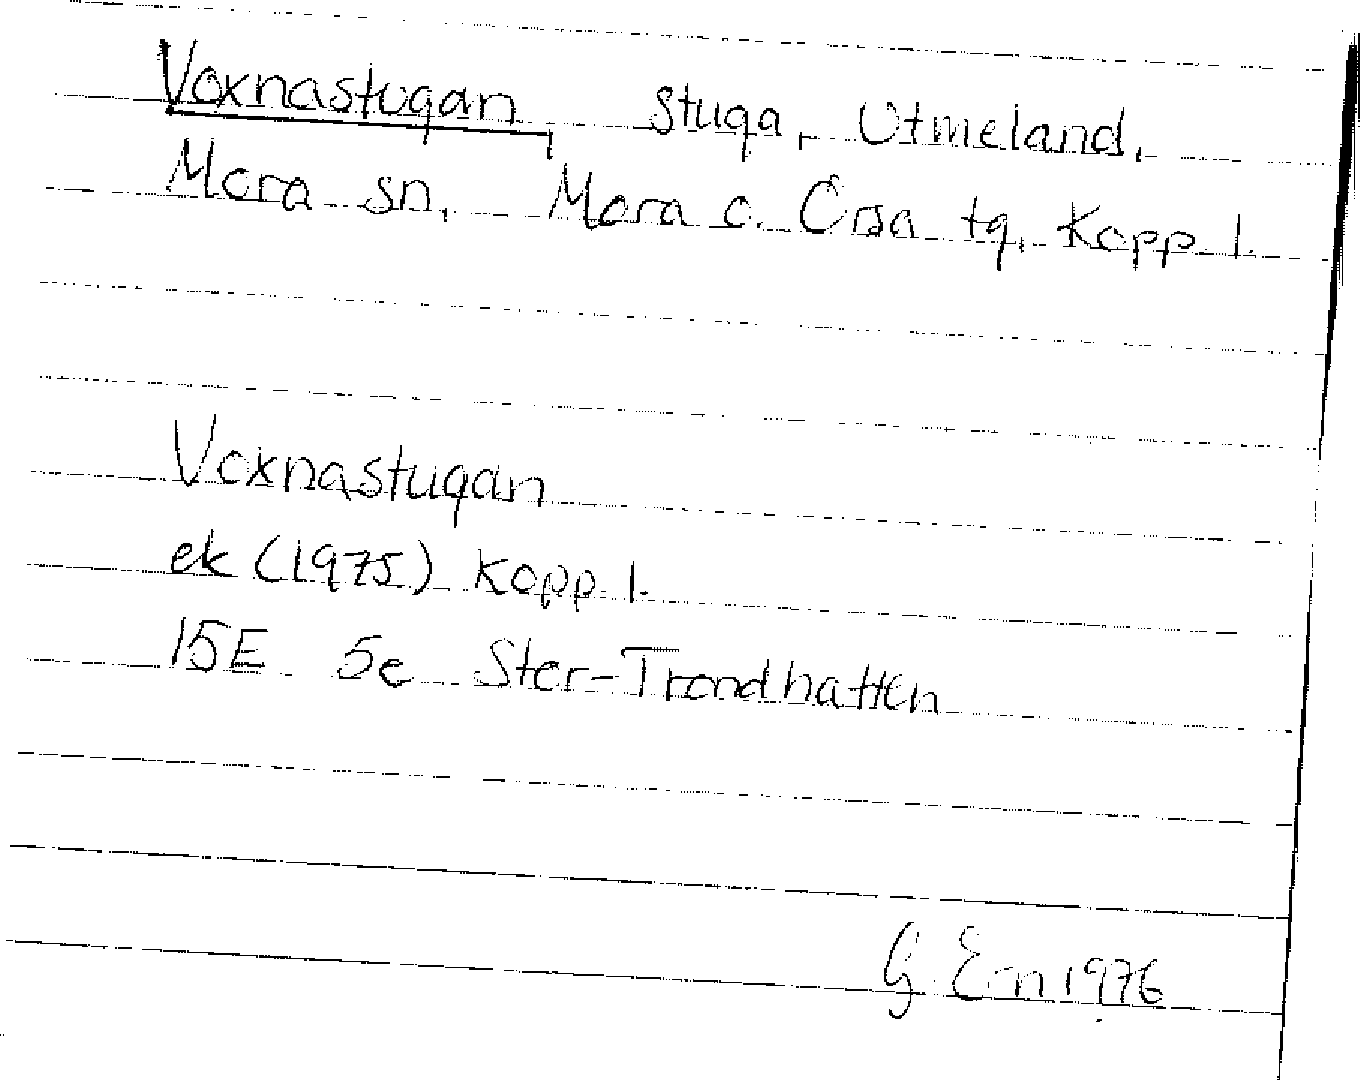 Voxnastugan, stuga, Utmeland,
Mora sn, Mora o. Orsa tg, Kopp. l.
Voxnastugan
ek (1975) Kopp. l.
15E 5e Stor-Trondhatten
G. E-n 1976